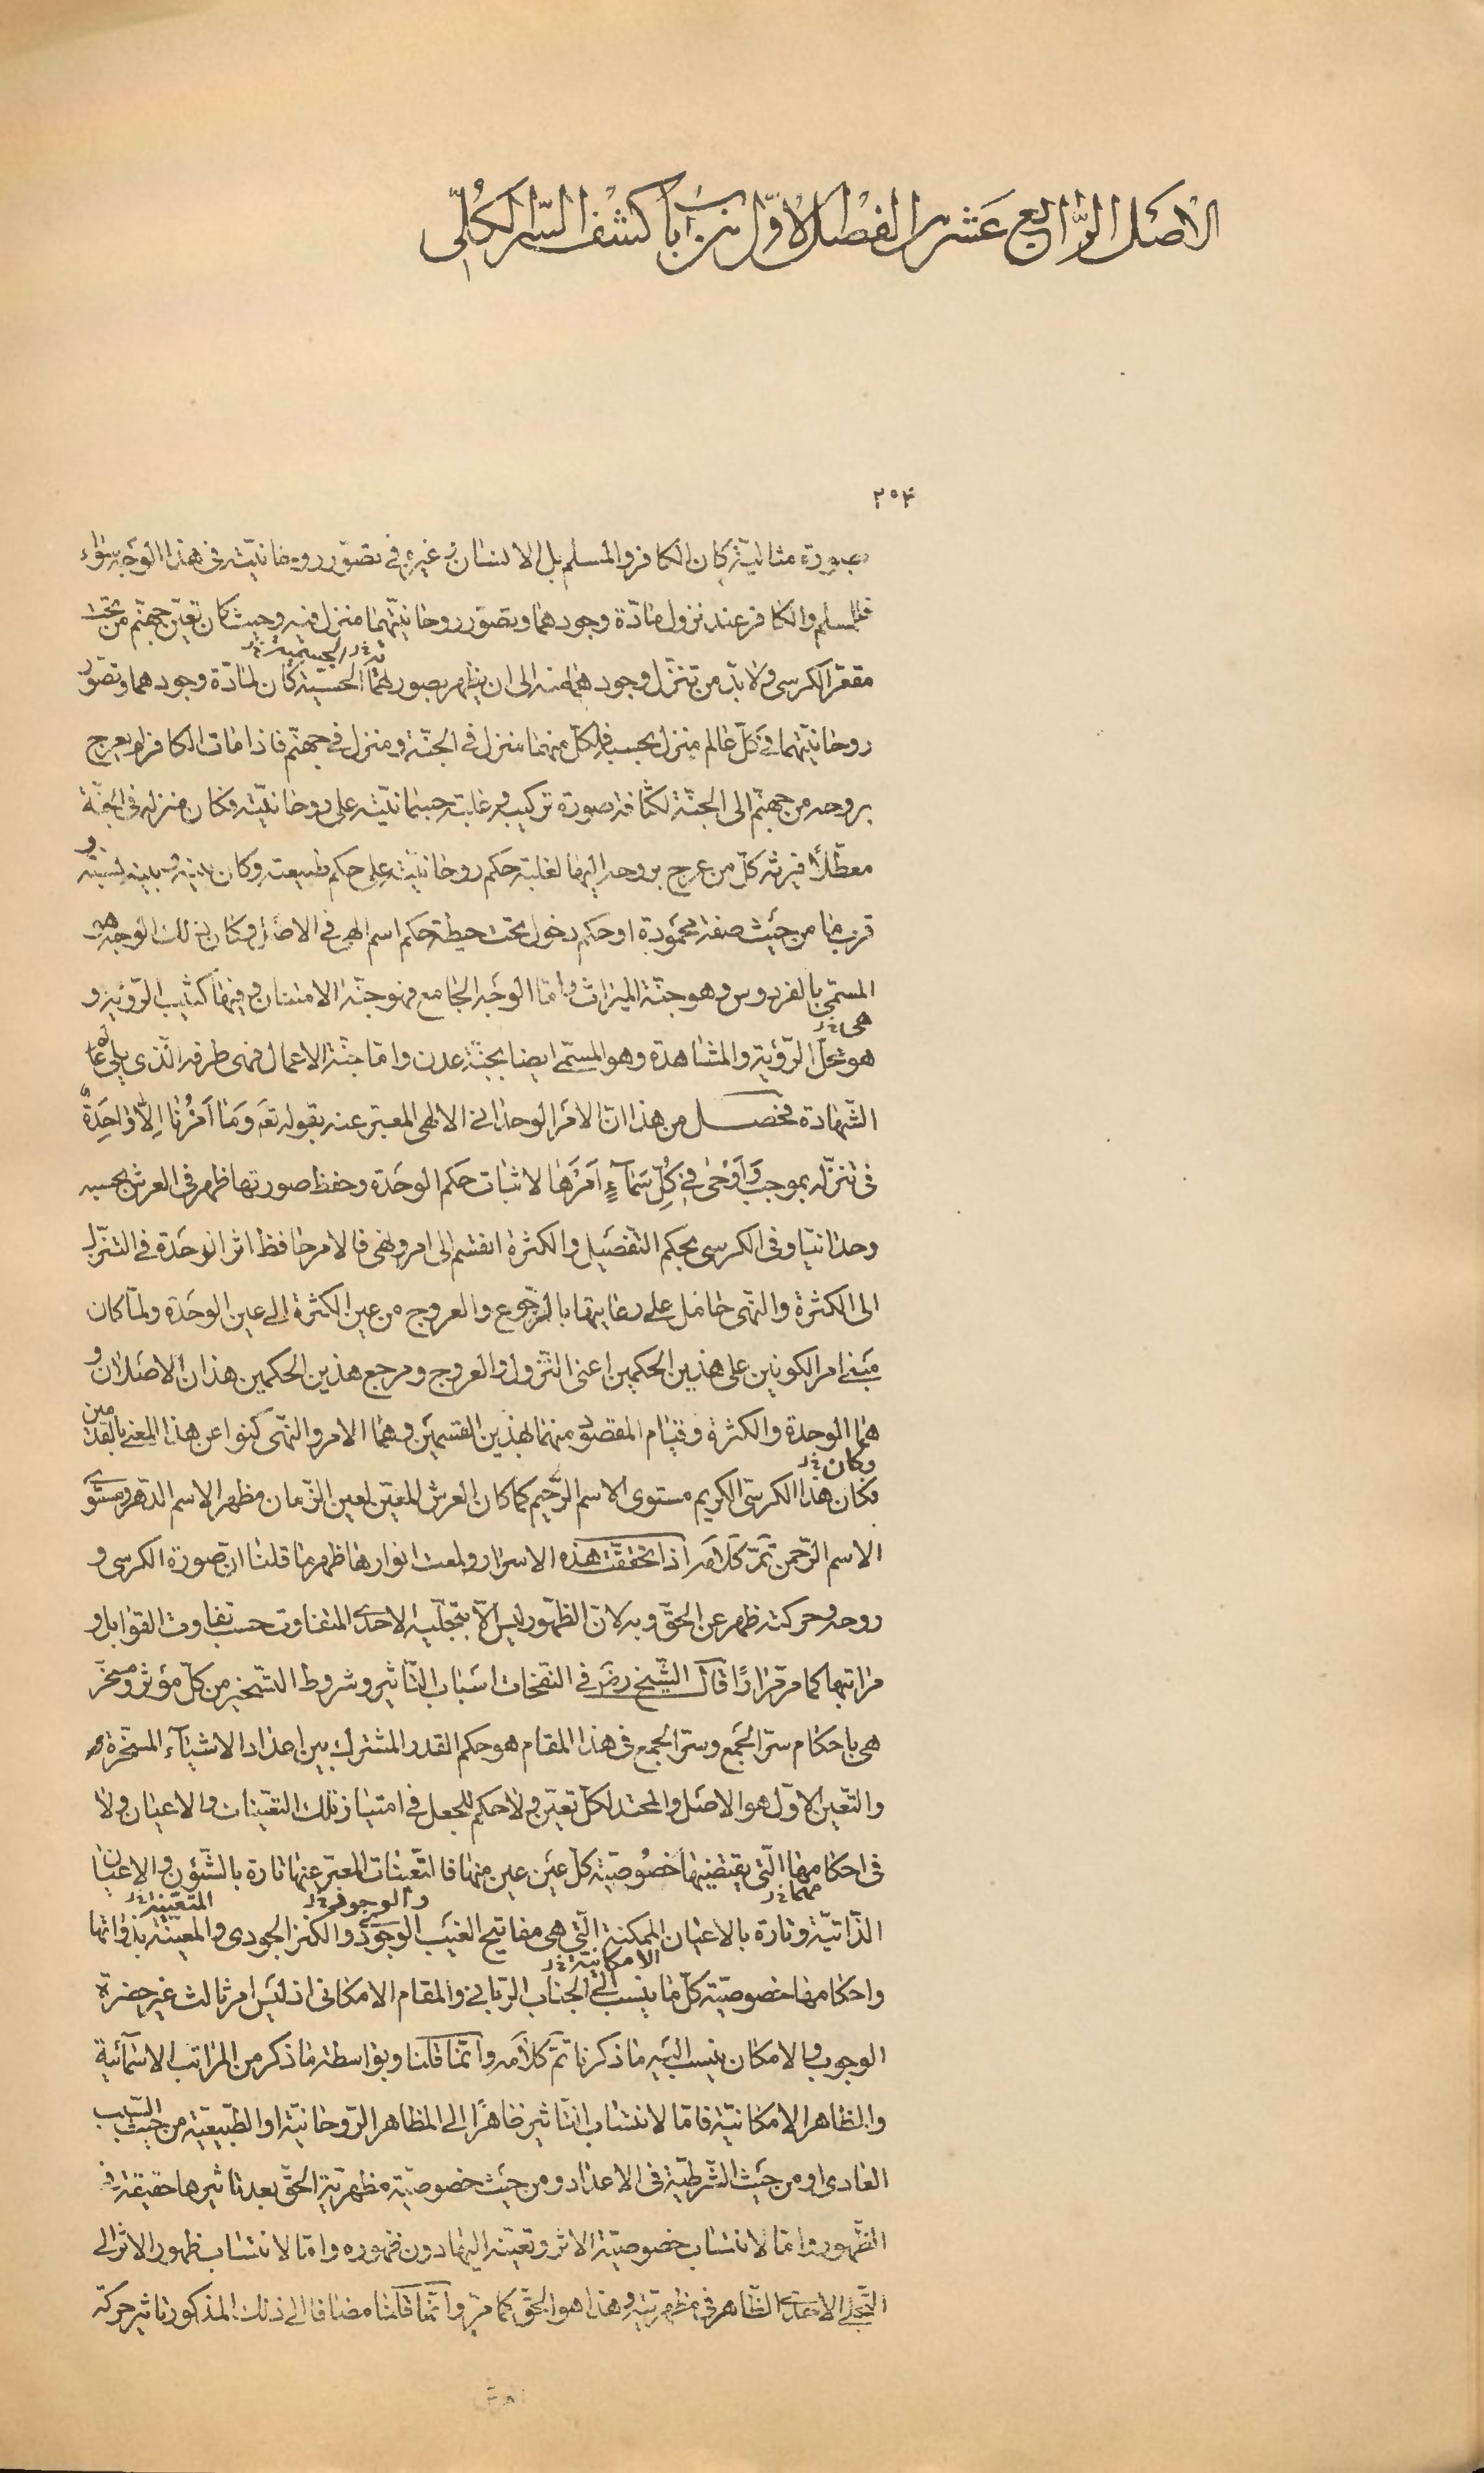 الاصل الرابع عشر من الفصل الاول من باب كشف السر الكلى
٢٥٤
بصورة مثالية كان الكافر والمسلم بل الانسان و غيره فى تصور روحانيته فى هذا الوجه سواء
فللمسلم والكافر عند نزول مادة وجودهما وتصور روحانيتهما منزل فيه وحيث كان تعين جهنم من تحت
الجسمية خ‌ل
مقعر الكرسى ولا بد من تنزل وجودهما منه الى ان يظهر بصورتهما الحسية كان لمادة وجودهما وتصور
روحانيتهما فى كل عالم منزل بحسبه فلكل منهما منزل فى الجنة ومنزل فى جهنم فاذا مات الكافر لم يعرج
بروحه من جهنم الى الجنة لكثافة صورة تركيبه و غلبة جسمانيته على روحانيته فكان منزله فى الجنة
معطلاً فيرثه كل من عرج بروحه اليها لغلبة حكم روحانيته على حكم طبيعته وكان بينه و بينه نسبة و
قرب ما من حيث صفة محمودة او حكم دخول تحت حيطة حكم اسم الهى فى الاصل وكان ذلك الوجه هو
المسمى بالفردوس وهو جنة الميراث واما الوجه الجامع فهو جنة الامتنان وفيها كثيب الرؤية و
هى خ‌ل
هو محل الرؤية والمشاهدة وهو المسمى ايضا بجنة عدن واما جنة الاعمال فهى طرفه الذى يلى عالم
الشهادة فحصل من هذا ان الامر الوحدانى الالهى المعبر عنه بقوله تعَ وَمَا اَمْرُنَا اِلاّ وَاحِدَةٌ
فى تنزله بموجب وَاَوْحٰى فِى كُلِّ سَمَآءٍ اَمْرَهَا لاثبات حكم الوحدة وحفظ صورتها ظهر فى العرش بحسبه
وحدانيا وفى الكرسى بحكم التفصيل والكثرة انقسم الى امر ونهى فالامر حافظ اثر الوحدة فى التنزل
الى الكثرة والنهى حامل على رعايتها بالرجوع والعروج من عين الكثرة الى عين الوحدة ولما كان
مبنى امر الكونين على هذين الحكمين اعنى النزول والعروج ومرجع هذين الحكمين هذان الاصلان و
هما الوحدة والكثرة وقيام المقصود منهما بهذين القسمين وهما الامر والنهى كنوا عن هذا المعنى بالقدمين
وكان خ‌ل
فكان هذا الكرسى الكريم مستوى الاسم الرحيم كما كان العرش المعين لعين الزمان مظهر الاسم الدهر ومستوى
الاسم الرحمن تمّ كلامه اذا تحققت هذه الاسرار ولمعت انوارها ظهر ما قلنا ان صورة الكرسى و
روحه وحركته ظهر عن الحق وبه لان الظهور ليس الا بتجليه الاحدى المتفاوت حسب تفاوت القوابل و
مراتبها كما مر مرارًا قال الشيخ رض فى النفحات اسباب التأثير وشروط التسخير من كل مؤثر ومسخر
هى باحكام سر الجمع وسر الجمع فى هذا المقام هو حكم القدر المشترك بين اعداد الاشياء المسخرة
والتعين الاول هو الاصل والمحتد لكل تعين ولا حكم للجعل فى امتياز تلك التعينات والاعيان ولا
فى احكامها التى يقتضيها خصوصية كل عين عين منها فالتعينات المعبر عنها تارة بالشؤن والاعيان
مهما خ‌ل والوجود خ‌ل المتعينة خ‌ل
الذاتية وتارة بالاعيان الممكنة التى هى مفاتيح الغيب الوجودى والكنز الجودى والمعينة بذواتها
الامكانية خ‌ل
واحكامها خصوصية كل ما ينسب الى الجناب الربانى والمقام الامكانى اذ ليس امر ثالث غير حضرة
الوجوب والامكان ينسب اليه ما ذكرنا تم كلامه وانما قلنا وبواسطة ما ذكر من المراتب الاسمائية
والمظاهر الامكانية فاما لانتساب التأثير ظاهرًا الى المظاهر الروحانية او الطبيعية من حيث السبب
العادى او من حيث الشرطية فى الاعداد ومن حيث خصوصية مظهرية الحق بعد تاثيرها حقيقة فى
الظهور واما لانتساب خصوصية الاثر وتعينه اليها دون ظهوره واما لانتساب ظهور الاثر الى
التجلى الاحدى الظاهر فى مظهريته وهذا هو الحق كما مر وانما قلنا مضافا الى ذلك المذكور تاثير حركة
العرش